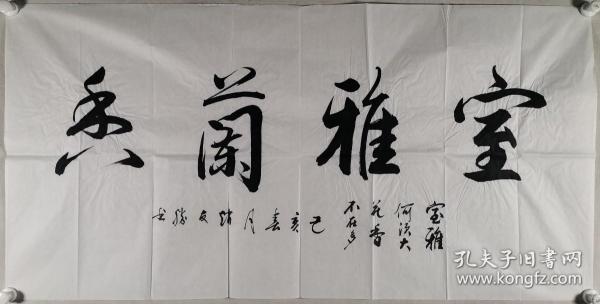 室雅蘭香
室雅
何须大
花香
不在多
己亥春月
书
孔夫子旧书网
www.kongfz.com